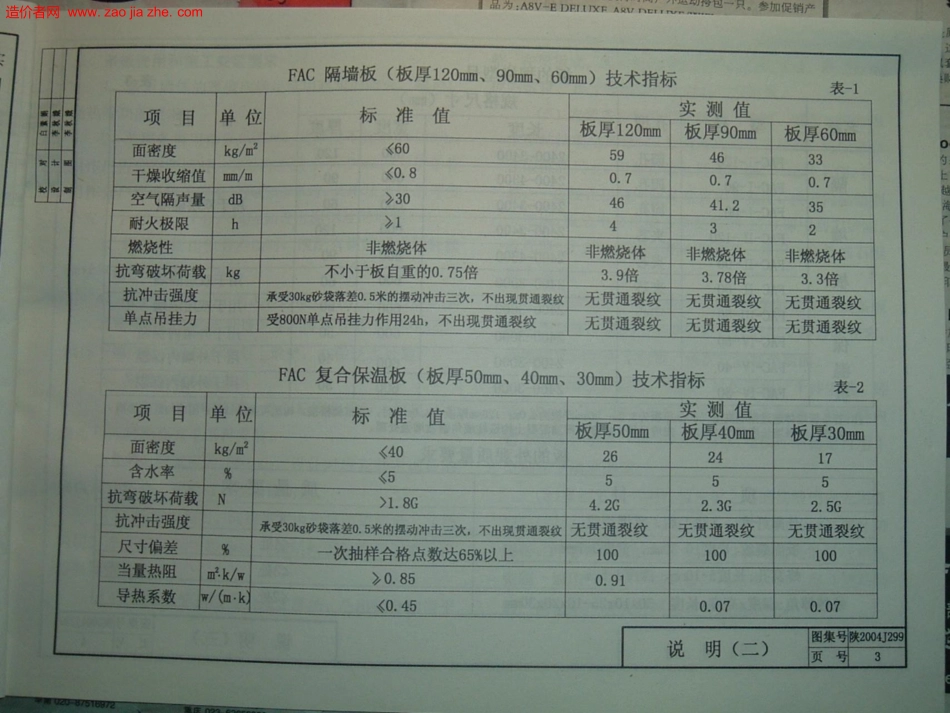 造价者网 www.zaojiazhe.com
品为:A8V-E DELUXE、A8V DELUXE
FAC 隔墙板（板厚120mm、90mm、60mm）技术指标
表-1
项 目 单 位 标 准 值 实 测 值
板厚120mm 板厚90mm 板厚60mm
面密度 kg/m² ≤60 59 46 33
干燥收缩值 mm/m ≤0.8 0.7 0.7 0.7
空气隔声量 dB ≥30 46 41.2 35
耐火极限 h ≥1 4 3 2
燃烧性 非燃烧体 非燃烧体 非燃烧体 非燃烧体
抗弯破坏荷载 kg 不小于板自重的0.75倍 3.9倍 3.78倍 3.3倍
抗冲击强度 承受30kg砂袋落差0.5米的摆动冲击三次，不出现贯通裂纹 无贯通裂纹 无贯通裂纹 无贯通裂纹
单点吊挂力 受800N单点吊挂力作用24h，不出现贯通裂纹 无贯通裂纹 无贯通裂纹 无贯通裂纹
FAC 复合保温板（板厚50mm、40mm、30mm）技术指标
表-2
项 目 单 位 标 准 值 实 测 值
板厚50mm 板厚40mm 板厚30mm
面密度 kg/m² ≤40 26 24 17
含水率 % ≤5 5 5 5
抗弯破坏荷载 N >1.8G 4.2G 2.3G 2.5G
抗冲击强度 承受30kg砂袋落差0.5米的摆动冲击三次，不出现贯通裂纹 无贯通裂纹 无贯通裂纹 无贯通裂纹
尺寸偏差 % 一次抽样合格点数达65%以上 100 100 100
当量热阻 m²·k/w ≥0.85 0.91
导热系数 w/(m·k) ≤0.45 0.07 0.07
说 明（二） 图集号 陕2004J299
页 号 3
校 对
设 计
制 图